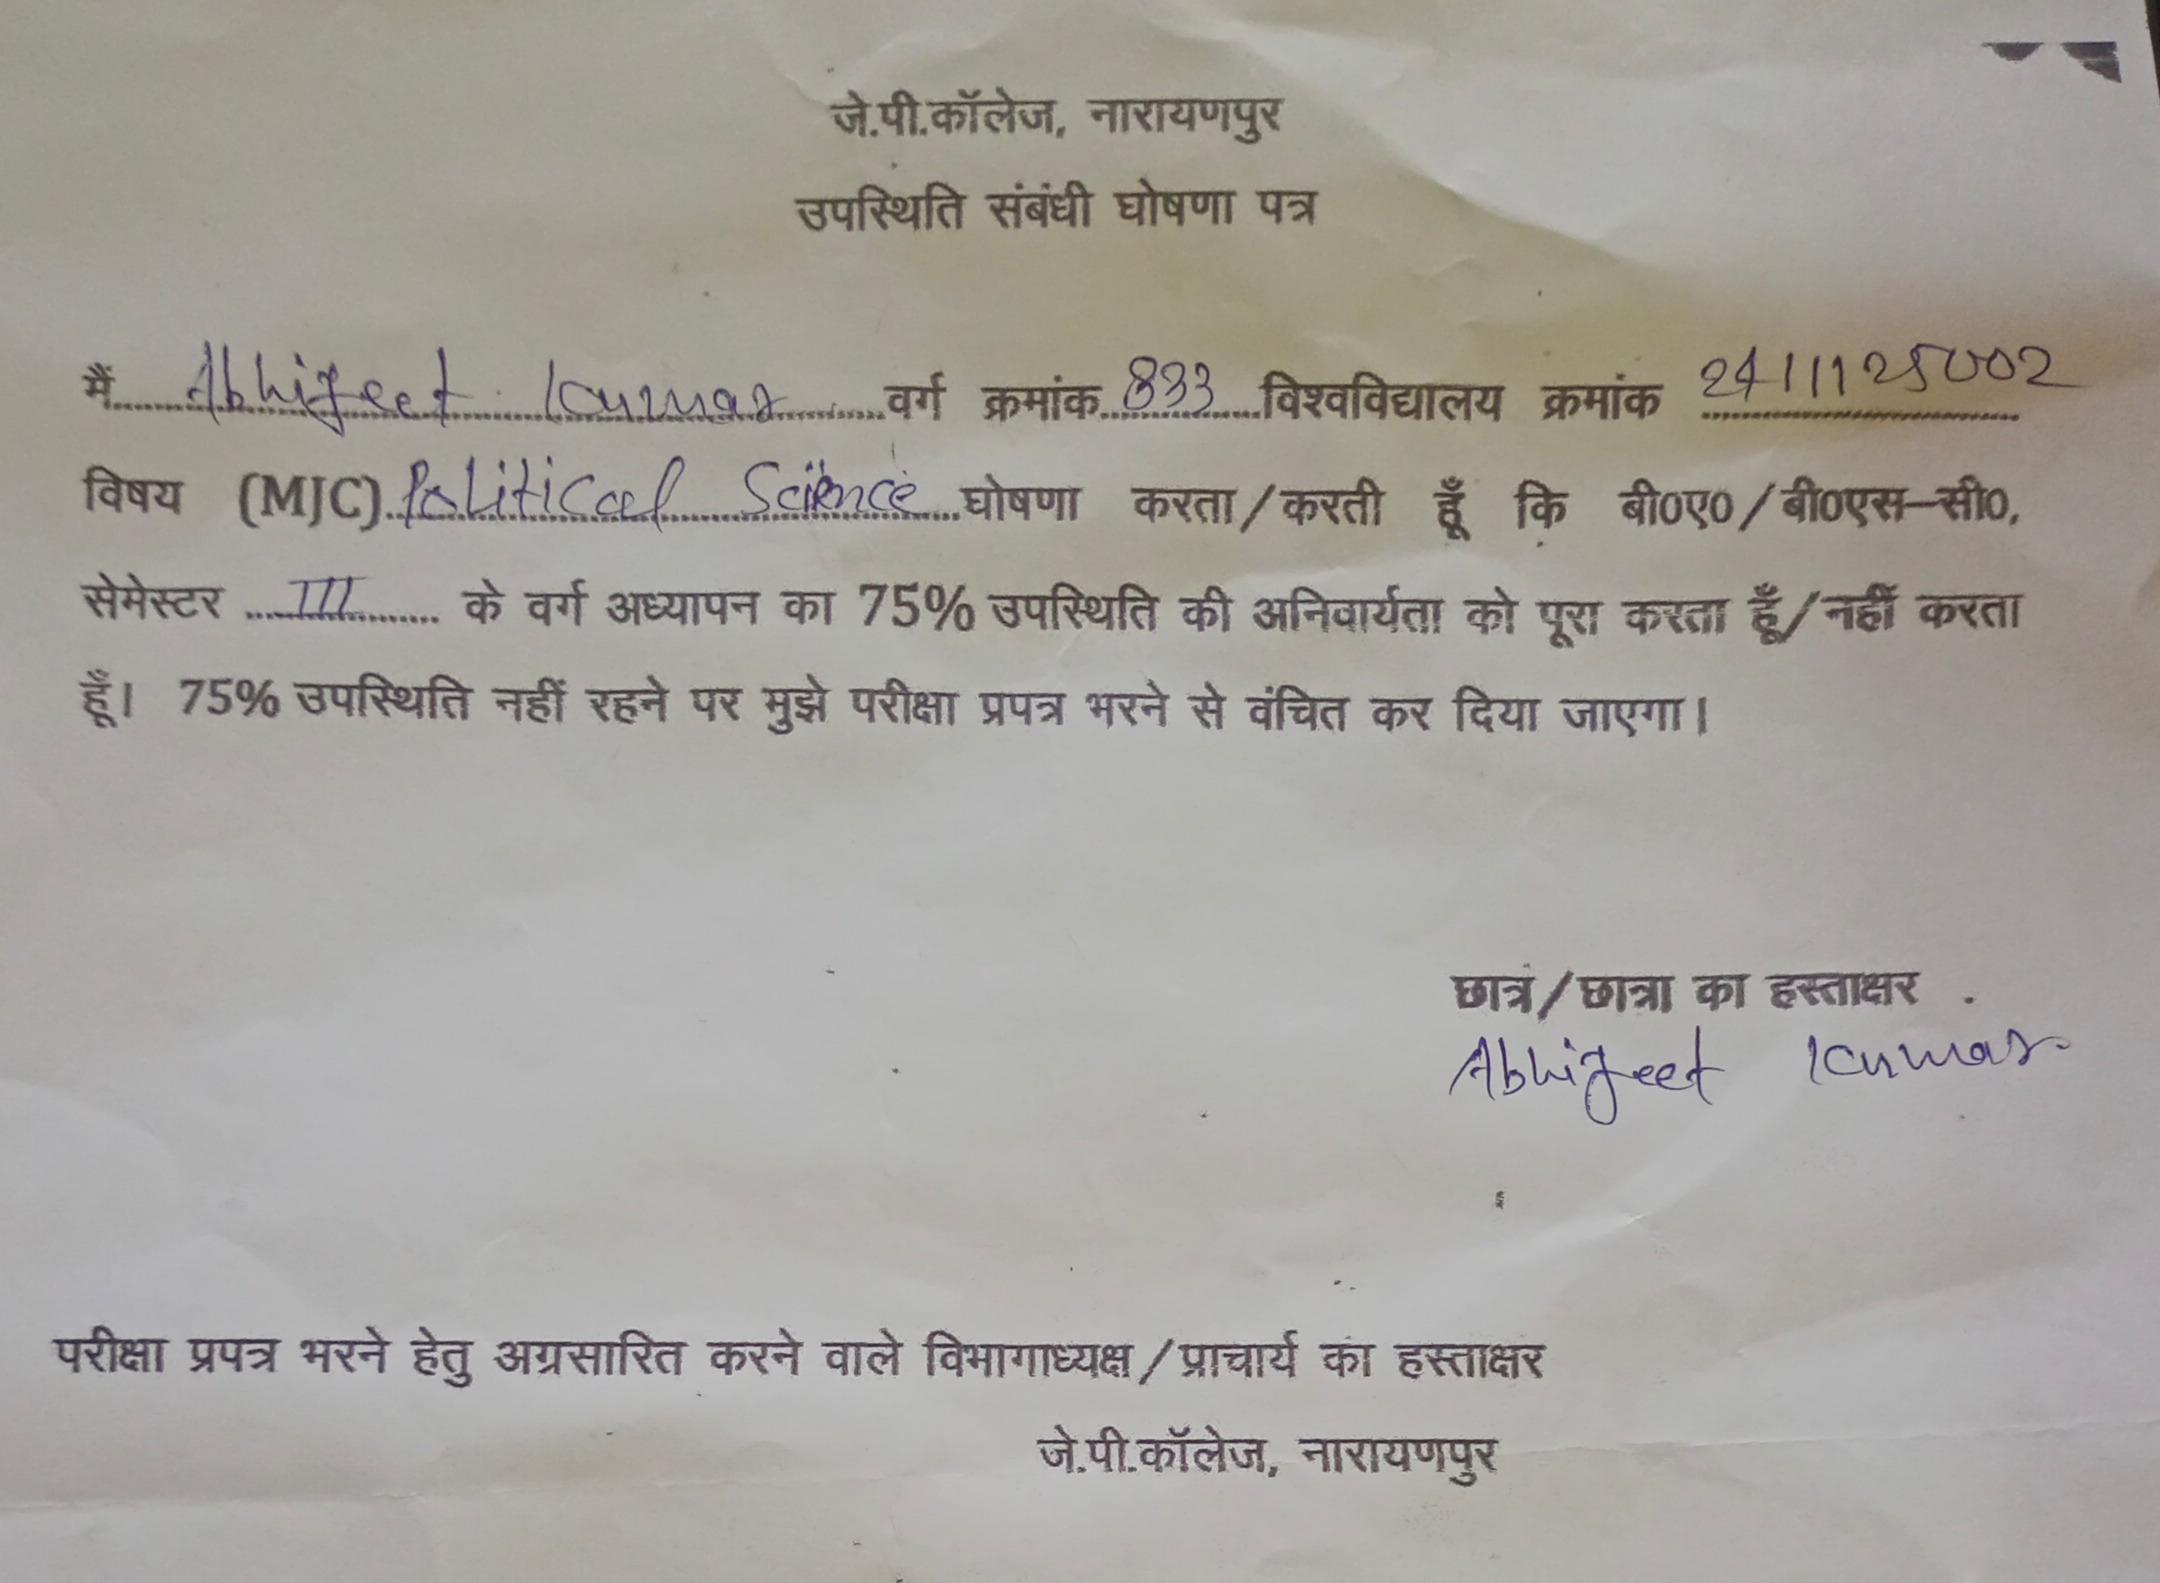 जे.पी.कॉलेज, नारायणपुर
उपस्थिति संबंधी घोषणा पत्र
मैं Abhijeet Kumar वर्ग क्रमांक 833 विश्वविद्यालय क्रमांक 24111125002
विषय (MJC) Political Science घोषणा करता/करती हूँ कि बी०ए०/बी०एस–सी०,
सेमेस्टर III के वर्ग अध्यापन का 75% उपस्थिति की अनिवार्यता को पूरा करता हूँ/नहीं करता
हूँ। 75% उपस्थिति नहीं रहने पर मुझे परीक्षा प्रपत्र भरने से वंचित कर दिया जाएगा।
छात्र/छात्रा का हस्ताक्षर
Abhijeet Kumar
परीक्षा प्रपत्र भरने हेतु अग्रसारित करने वाले विभागाध्यक्ष/प्राचार्य का हस्ताक्षर
जे.पी.कॉलेज, नारायणपुर